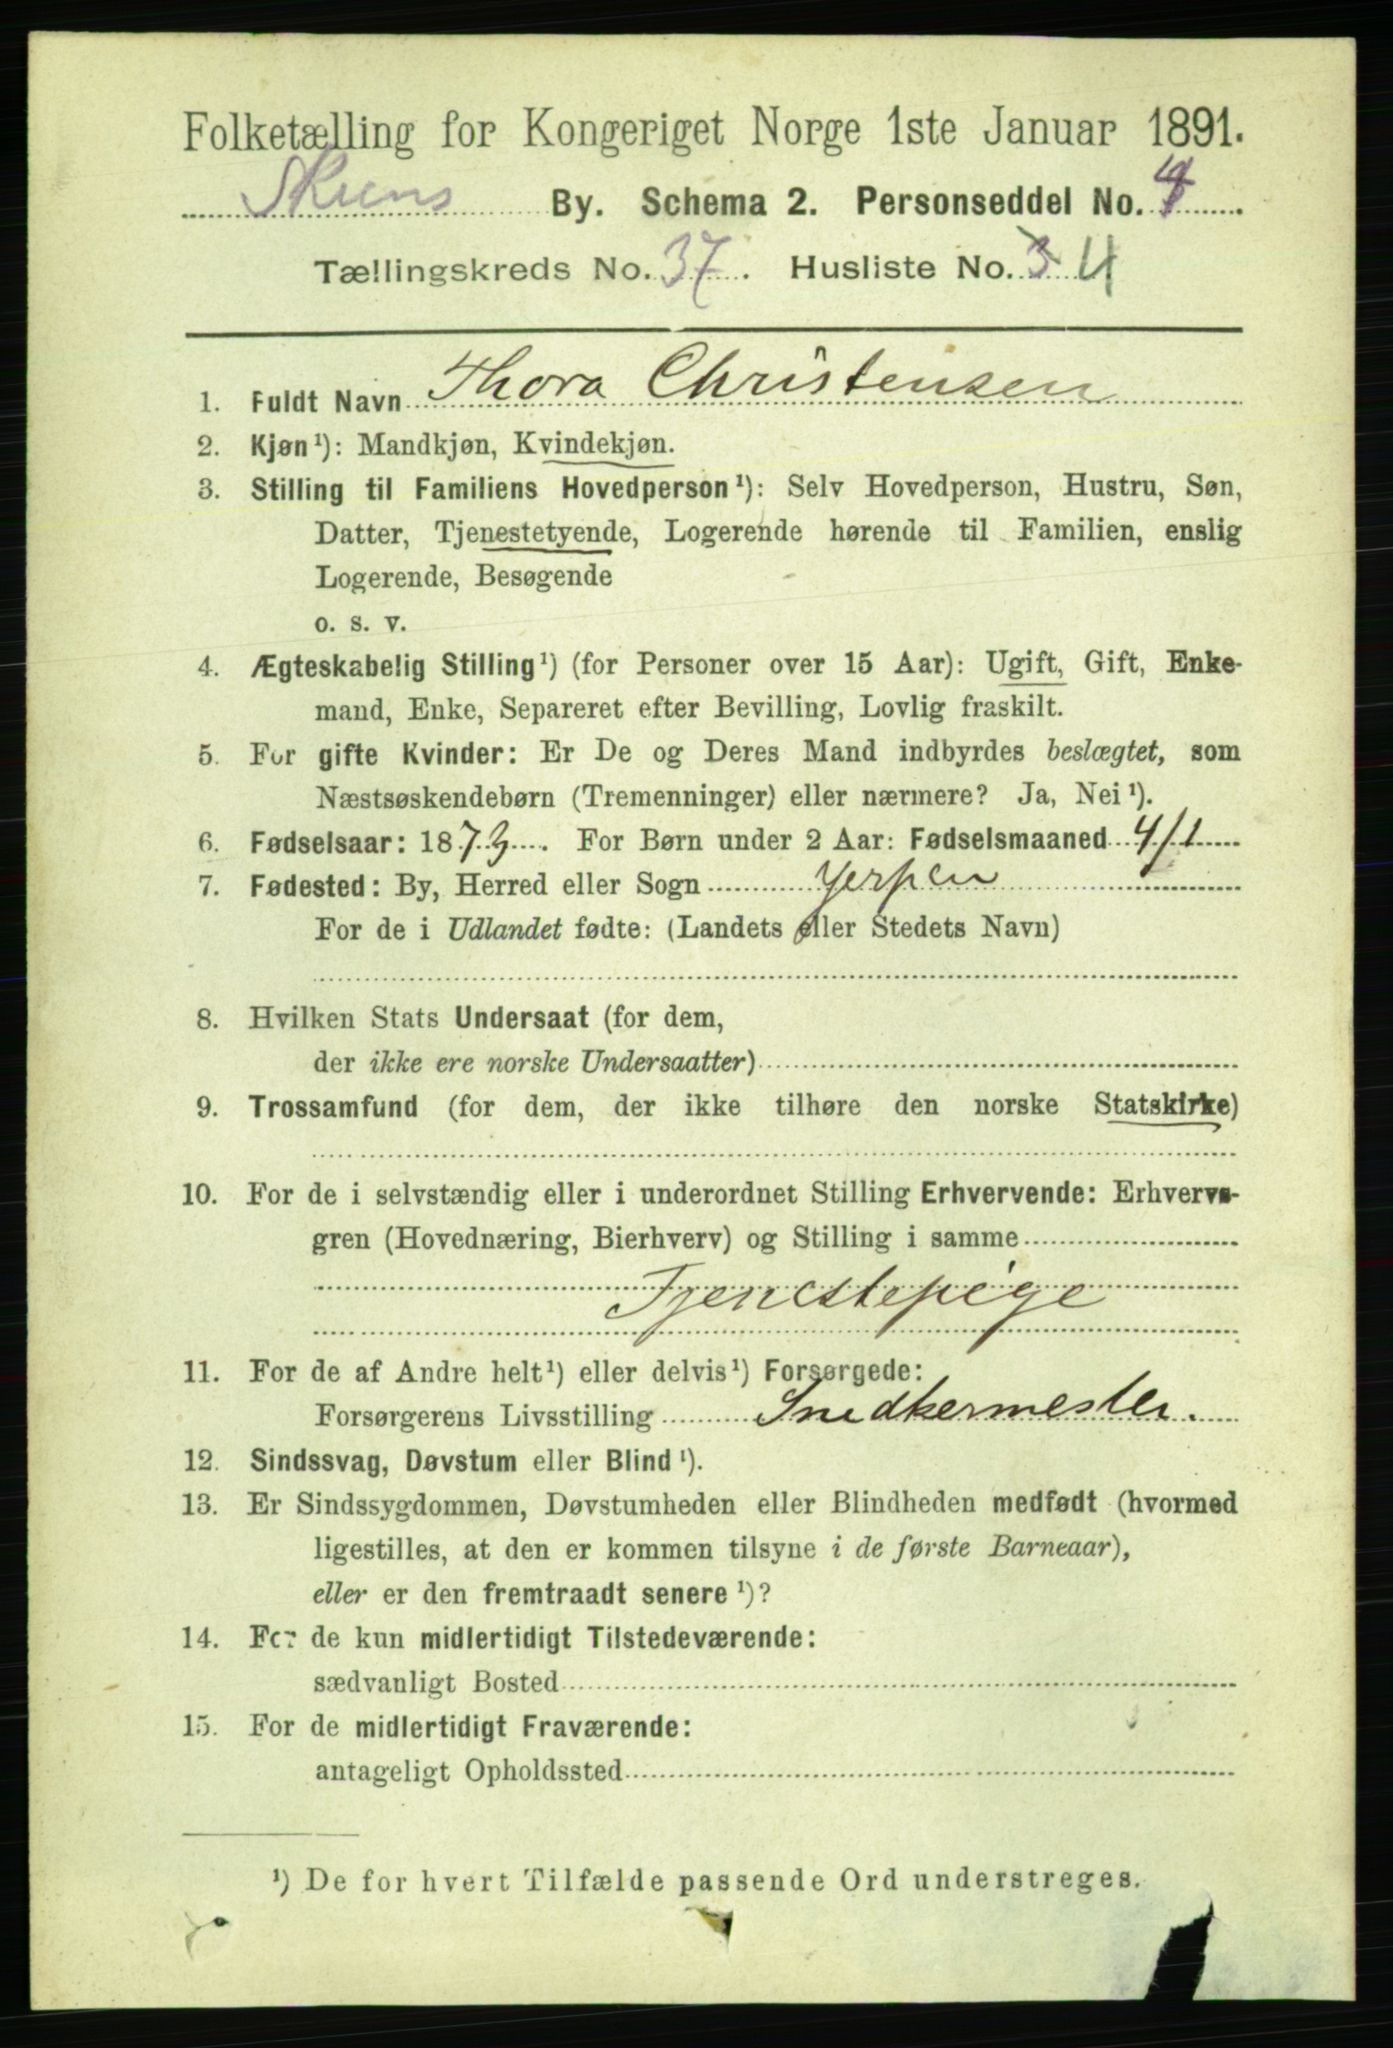 Folketælling for Kongeriget Norge 1ste Januar 1891.
Skiens By. Schema 2. Personseddel No. 4
Tællingskreds No. 37. Husliste No. 3 4
1. Fuldt Navn Thora Christensen
2. Kjøn¹): Mandkjøn, Kvindekjøn.
3. Stilling til Familiens Hovedperson¹): Selv Hovedperson, Hustru, Søn,
Datter, Tjenestetyende, Logerende hørende til Familien, enslig
Logerende, Besøgende
o. s. v.
4. Ægteskabelig Stilling¹) (for Personer over 15 Aar): Ugift, Gift, Enke-
mand, Enke, Separeret efter Bevilling, Lovlig fraskilt.
5. For gifte Kvinder: Er De og Deres Mand indbyrdes beslægtet, som
Næstsøskendebørn (Tremenninger) eller nærmere? Ja, Nei¹).
6. Fødselsaar: 1873. For Børn under 2 Aar: Fødselsmaaned 4/1
7. Fødested: By, Herred eller Sogn Gerpen
For de i Udlandet fødte: (Landets eller Stedets Navn)
8. Hvilken Stats Undersaat (for dem,
der ikke ere norske Undersaatter)
9. Trossamfund (for dem, der ikke tilhøre den norske Statskirke)
10. For de i selvstændig eller i underordnet Stilling Erhvervende: Erhvervs-
gren (Hovednæring, Bierhverv) og Stilling i samme
Tjenestepige
11. For de af Andre helt¹) eller delvis¹) Forsørgede:
Forsørgerens Livsstilling Snedkermester.
12. Sindssvag, Døvstum eller Blind¹).
13. Er Sindssygdommen, Døvstumheden eller Blindheden medfødt (hvormed
ligestilles, at den er kommen tilsyne i de første Barneaar),
eller er den fremtraadt senere¹)?
14. For de kun midlertidigt Tilstedeværende:
sædvanligt Bosted
15. For de midlertidigt Fraværende:
antageligt Opholdssted
¹) De for hvert Tilfælde passende Ord understreges.